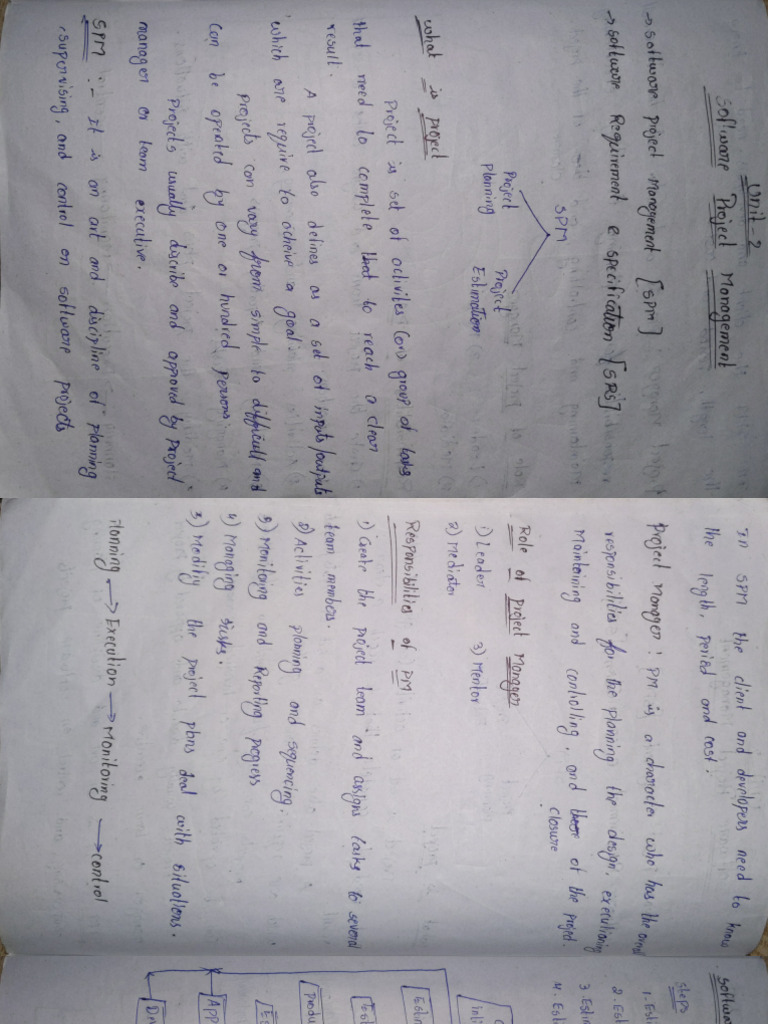 Unit-2
Software Project Management
→ software project Management [SPM]
→ software Requirement & specification [SRS]
SPM
Project Planning
Project Estimation
what is project
Project is set of activites (or) group of tasks
that need to complete that to reach a clear
result.
A project also defines as a set of inputs/outputs
which are require to acheive a goal.
Projects can vary from simple to difficult and
can be operated by one or hundred persons
Projects usually discribe and approved by project
manager or team executive.
SPM :- It is an art and discipline of planning
supervising, and control on software projects
In SPM the client and developers need to know
the length, period and cost.
Project Manager : PM is a character who has the
responsibilities for the planning the design, executioning
Maintaining and controlling, and of the project.
closure
Role of project Manager
1) Leader 3) Mentor
2) Mediator
Responsibilities of PM
1) Create the project team and assigns tasks to several
team members.
2) Activities planning and sequencing.
3) Monitoring and Reporting progress
4) Manging risks.
5) Modifiy the project plans deal with situations.
Planning → Execution → Monitoring → control
Softwa
Steps
1. Esti
2. Est
3. Estim
4. Esti
Estim
Esti
Produ
APP